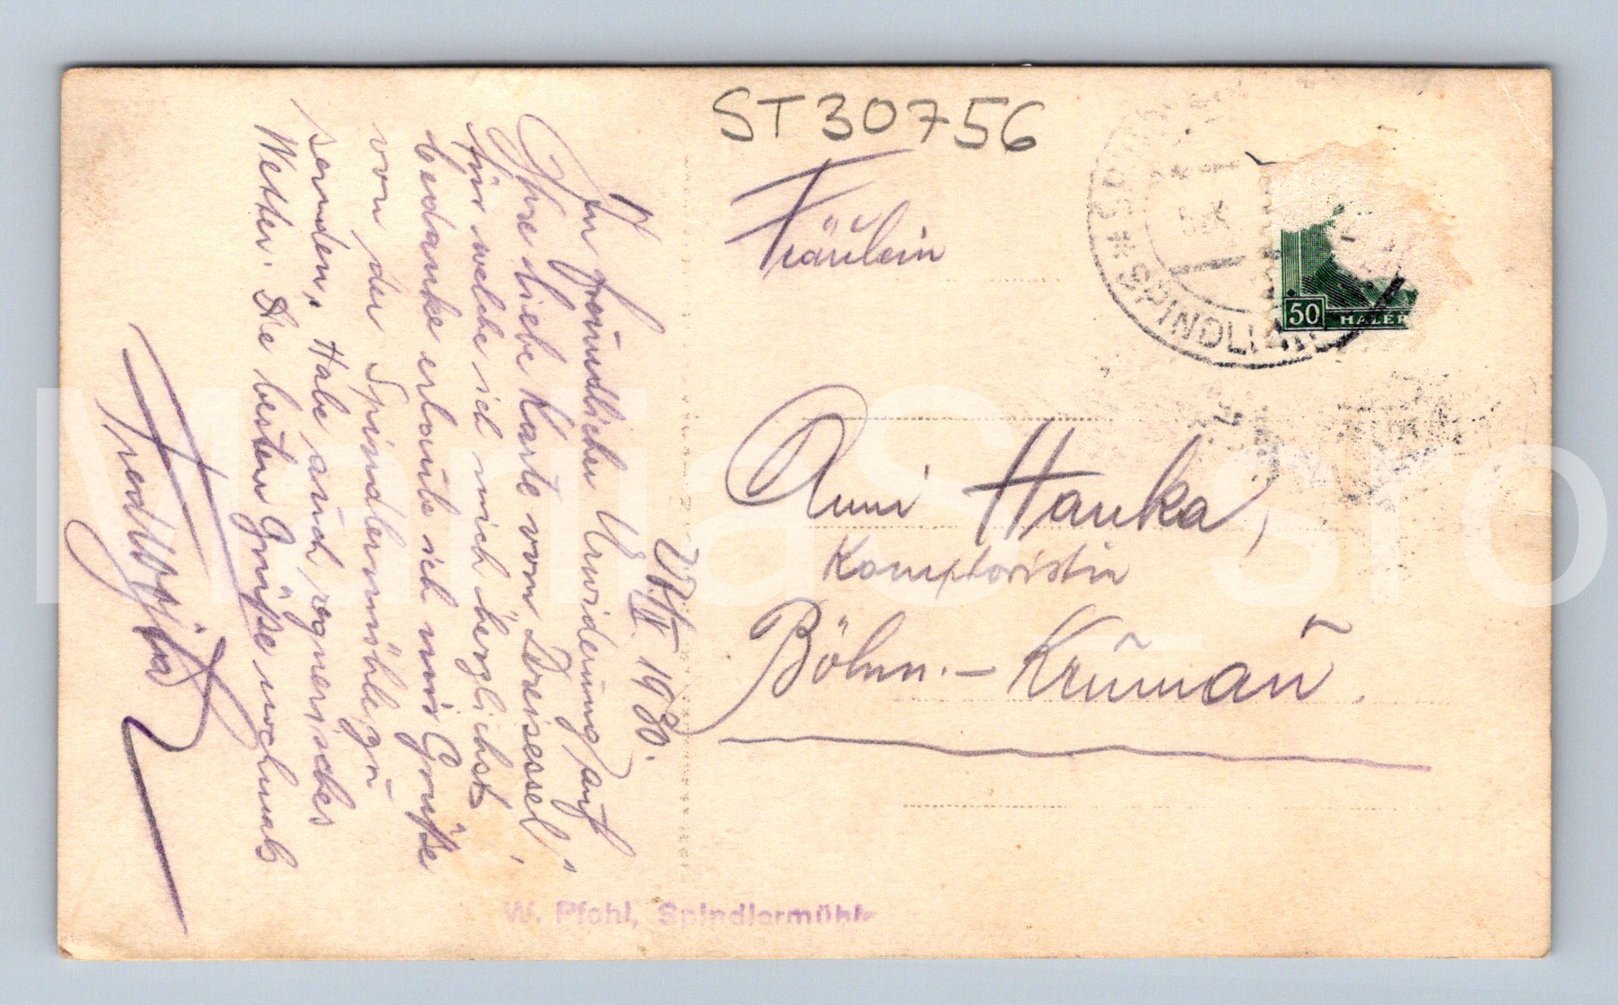 ST30756
Fräulein
Anni Hanka,
Komptoristin
Böhm.- Krumau.
50
HALÉŘ
* SPINDL
17./IV. 1930.
In freundlicher Erwiderung auf
Ihre liebe Karte vom „Dreisessel“,
für welche ich mich herzlichst
bedanke erlaube ich mir Grüße
von der Spindlermühle zu
senden, Habe auch regnerisches
Wetter. Die besten Grüße nochmals
W. Pfohl, Spindlermühle
ManiaS sro